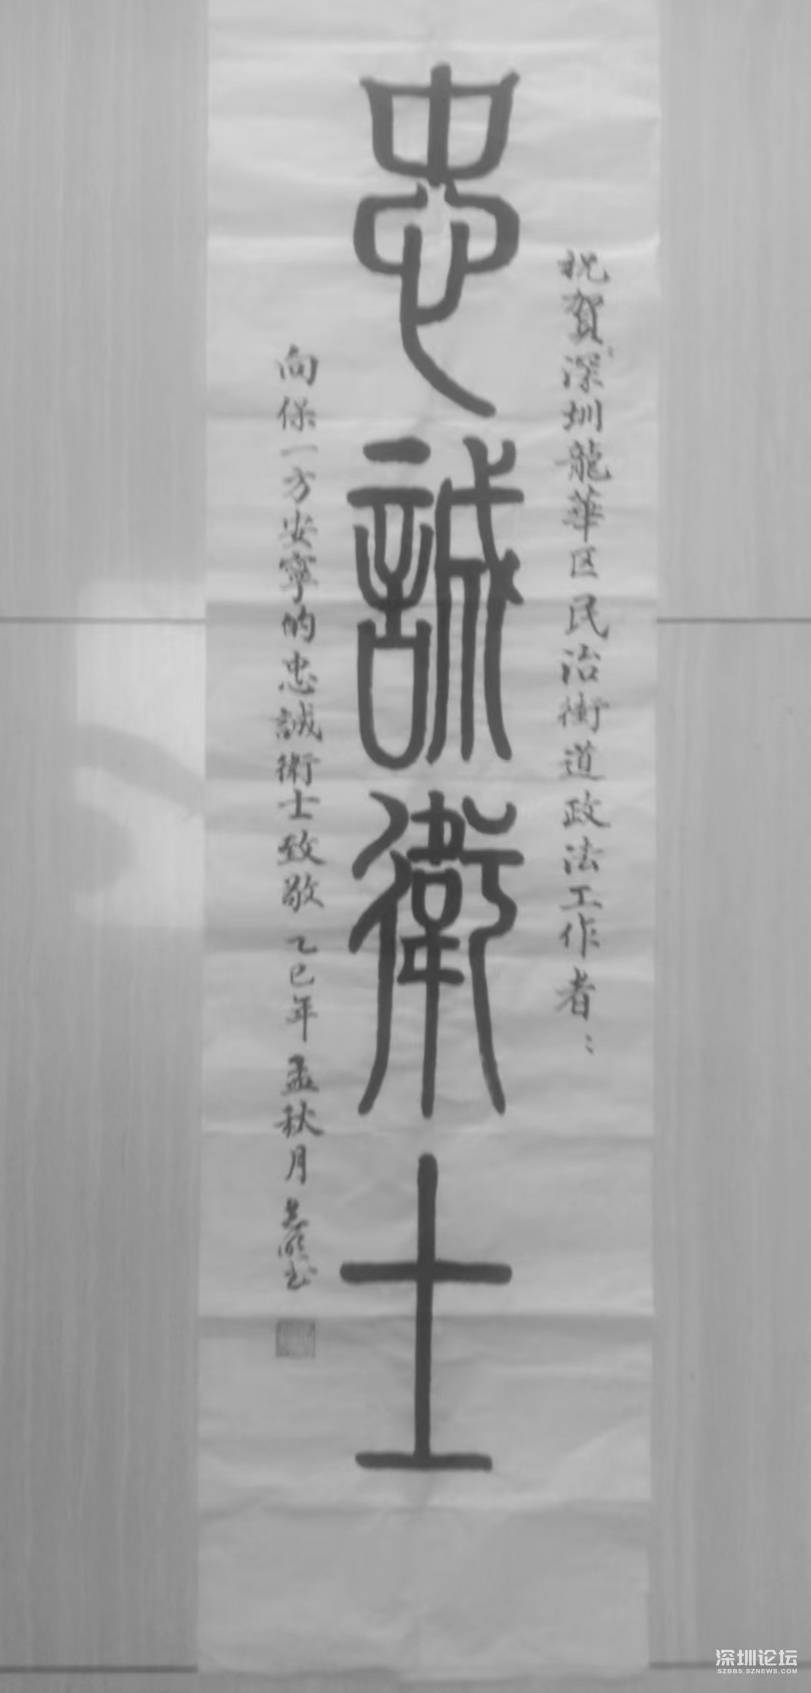 祝賀深圳龍華区民治街道政法工作者：
忠誠衛士
向保一方安寧的忠誠衛士致敬 乙巳年孟秋月
深圳论坛
SZBBS.SZNEWS.COM